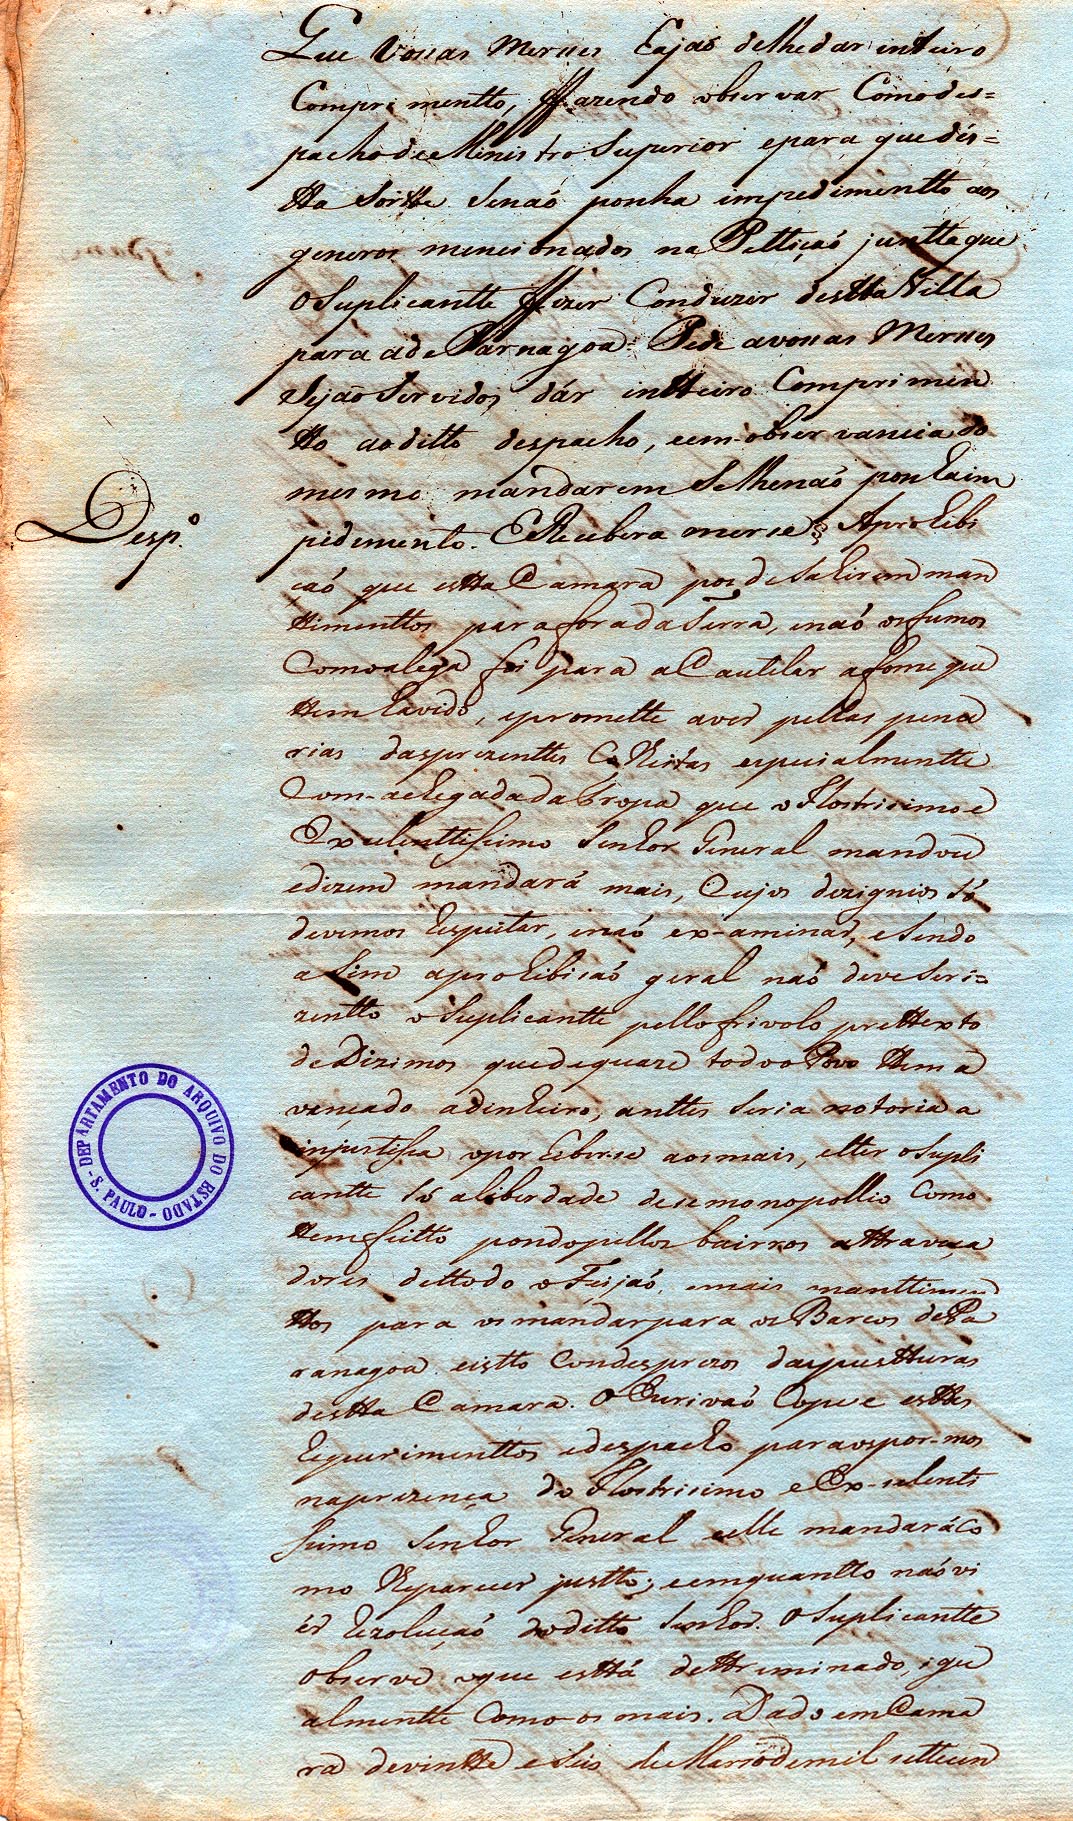 Que Vossas Merces hajaõ delhe dar inteiro
Comprimentto, ffazendo observar Como des=
pacho de Ministro Superior e para que dés=
tta Sortte Senaõ ponha impedimentto aos
generos mencionados na Pettiçaõ juntta que
o Suplicantte ffizer Conduzir destta Villa
para a de Parnagoa = Pede a vossas Merces
Sejaõ Servidos dár intteiro Comprimen
tto ao ditto despacho, e em observancia do
mesmo mandarem Selhe naõ ponha im
pedimento. E Recebera merce § A prohibi
Desp.º
çaõ que estta Camara pos de Sahirem man
timenttos para fora da Terra, e naõ os fumos
Como alega foi para aCautelar a fome que
ttem havido, e promette aver pellas penu
rias das prezenttes Colheitas especialmentte
Com a chegada da Tropa que o Ilostrisimo e
Excelenttissimo Senhor General mandou
e dizem mandará mais, Cujos dezignios Só
devemos respeitar, e naõ ex-aminar, e Sendo
a Sim a prohibicaõ geral naõ deve Ser i=
zentto o Suplicantte pello frivolo prettexto
de Dizimos que de quaze todo o Povo ttem a
vençado a dinheiro, anttes Seria notoria a
injustissa o prohibir-se aos mais, e tter o Supli
cantte Só a liberdade de se monopollio Como
ttem feitto pondo pellos bairros attraveça
dores de ttodo o Feijaõ, e mais manttimen
ttos para os mandar para os Barcos de Pa
ranagoa e istto Con desprezos das postturas
destta Camara. O Escrivaõ Copie esttes
requerimenttos e despacho para os por-mos
na prezença do Ilostrisimo e Ex-celentti
simo Senhor General e elle mandará Co
mo lhe parecer justto; e emquantto naõ vi
ér rezoluçaõ do ditto Senhor. O Suplicantte
observe o que esttá dettreminado, igu
almentte Como os mais. Dado em Cama
ra de vintte e Seis de Marso de mil settecen
DEPARTAMENTO DO ARQUIVO DO ESTADO - S. PAULO -